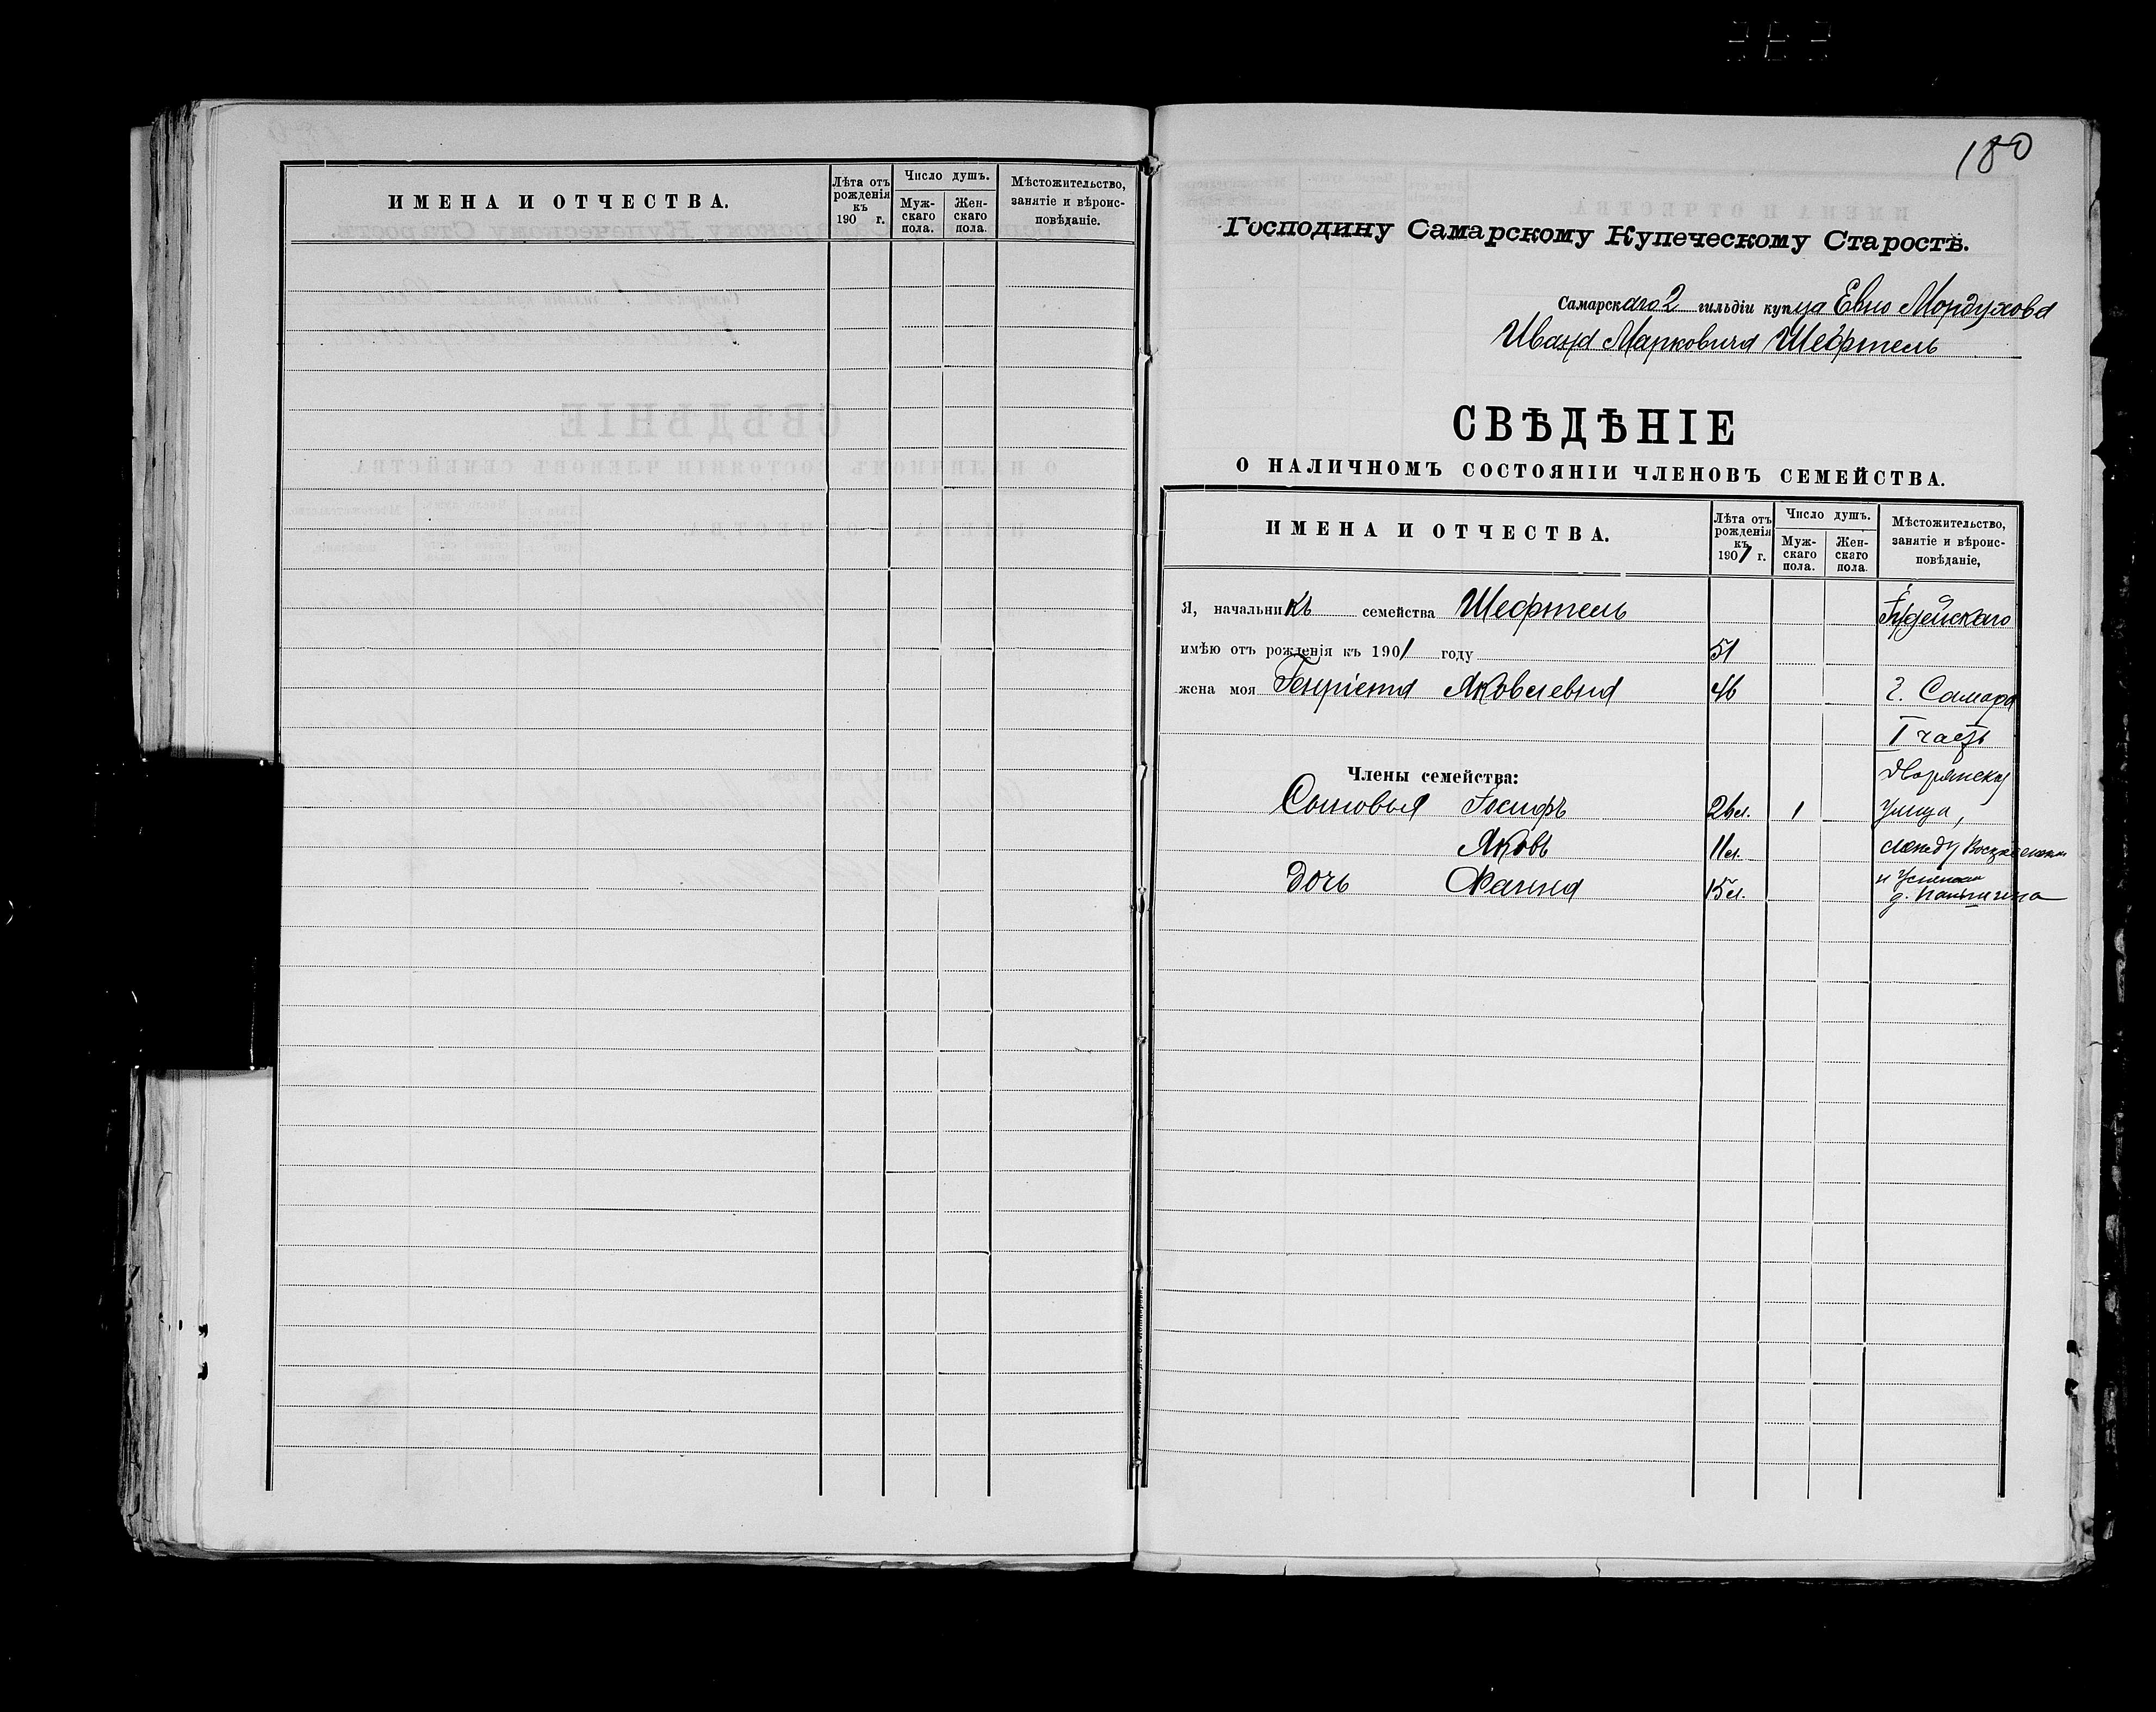 ИМЕНА И ОТЧЕСТВА.
Лѣта отъ рожденія къ 190 г.
Число душъ.
Муж-скаго пола.
Жен-скаго пола.
Мѣстожительство, занятіе и вѣроис-повѣданіе.
180
Господину Самарскому Купеческому Старостѣ.
Самарскаго 2 гильдіи купца Евно Мордухова
Ивана Марковича Шефтель
СВѢДѢНІЕ
О НАЛИЧНОМЪ СОСТОЯНІИ ЧЛЕНОВЪ СЕМЕЙСТВА.
ИМЕНА И ОТЧЕСТВА.
Лѣта отъ рожденія къ 1901 г.
Число душъ.
Муж-скаго пола.
Жен-скаго пола.
Мѣстожительство, занятіе и вѣроис-повѣданіе,
Я, начальникъ семейства Шефтель Іудейскаго
имѣю отъ рожденія къ 1901 году 51
жена моя Генріета Яковлевна 46 г. Самара
I часть
Члены семейства: Дворянская
Сыновья Іосифъ 26 л. 1 улица,
Яковъ 11 л. между
Дочь Фанна 15 л. и
д.